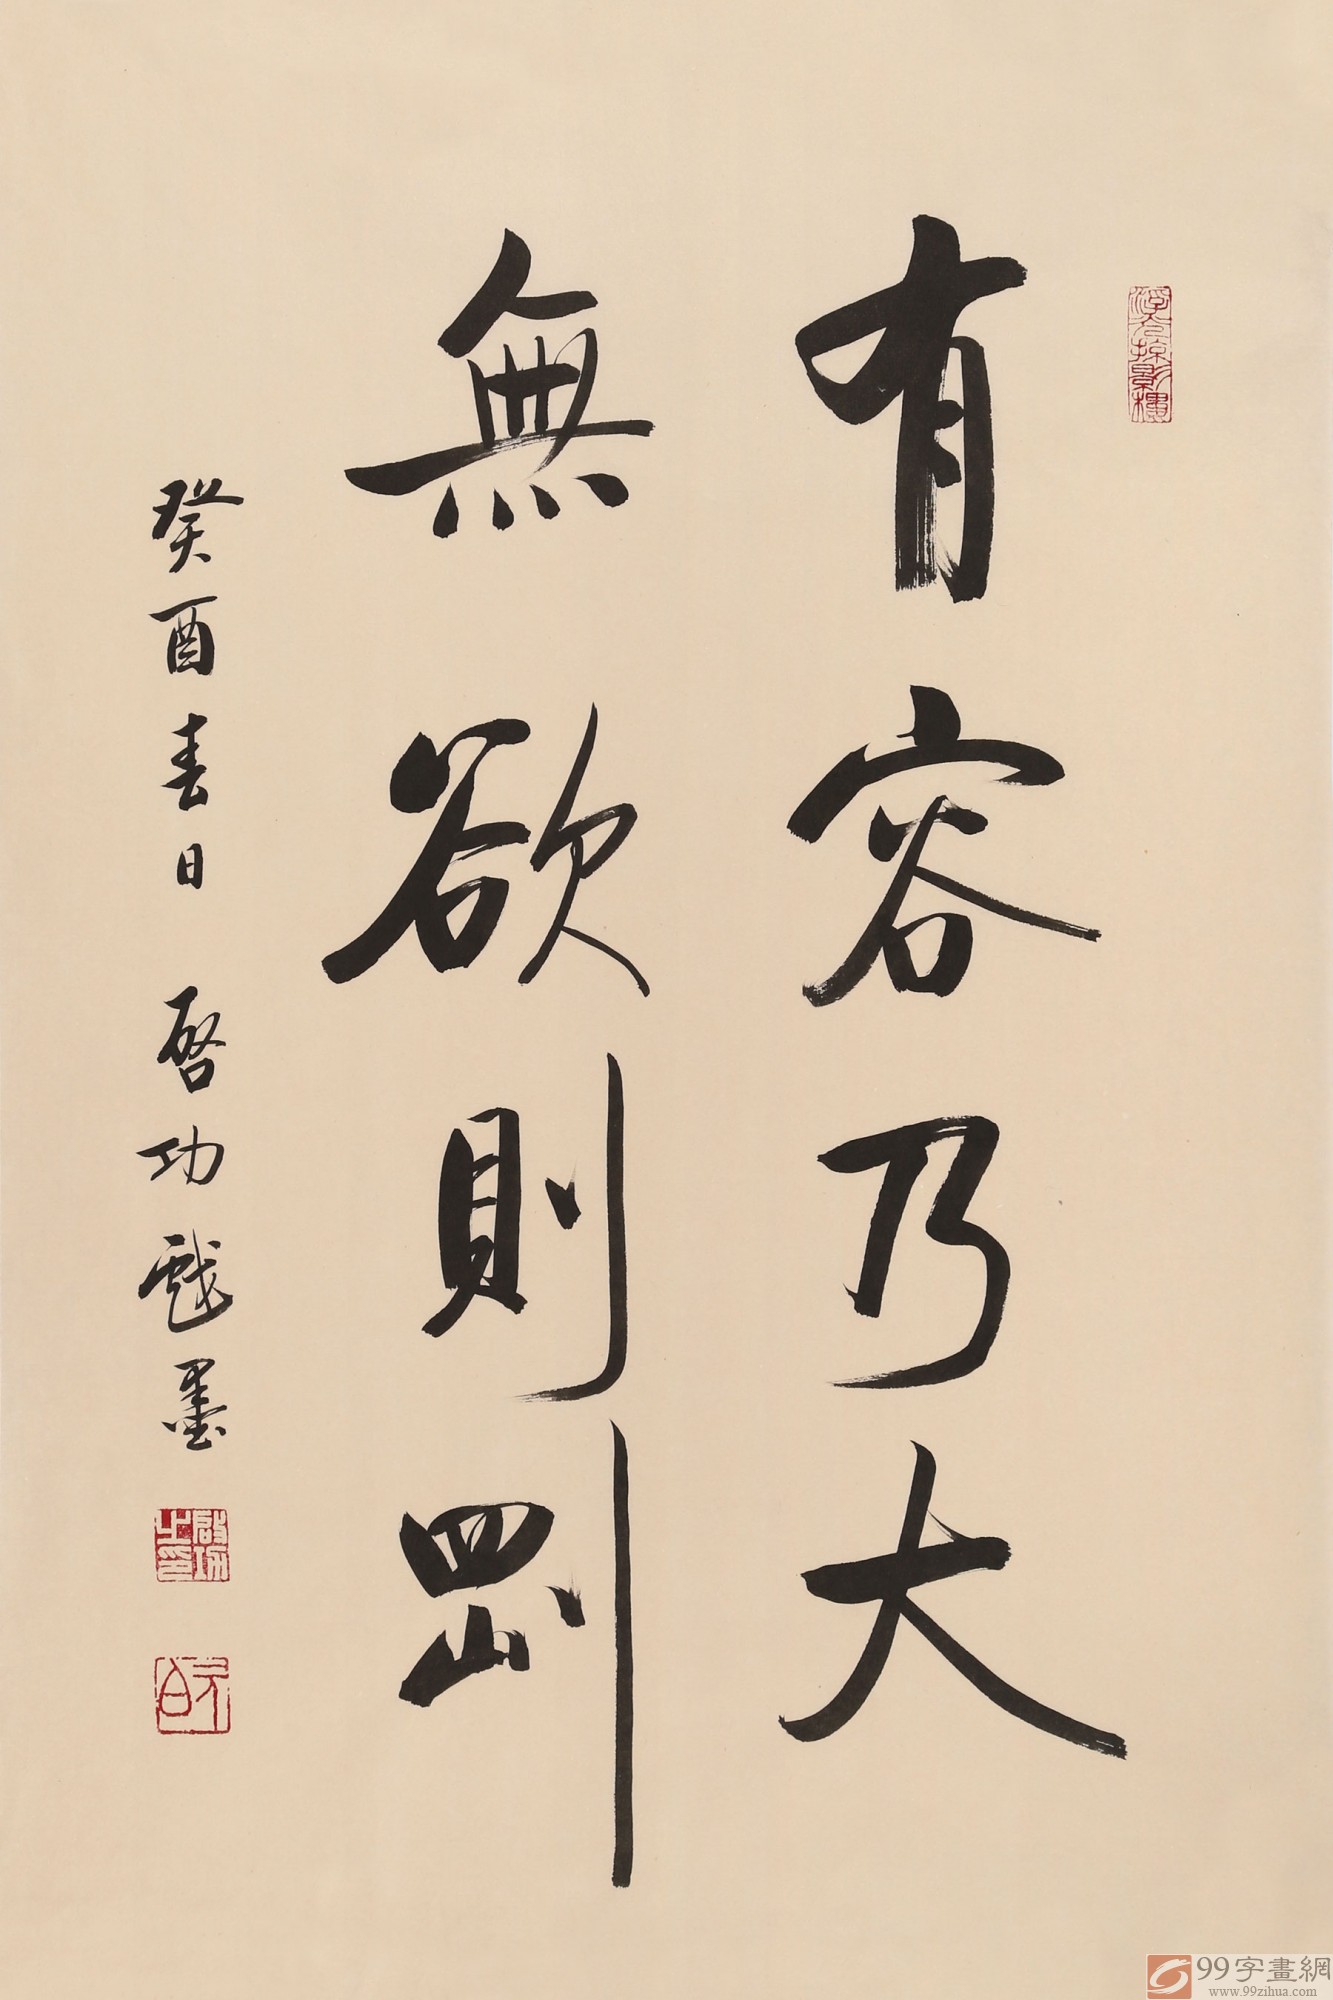 有容乃大
無欲則剛
癸酉春日 啓功戲墨
啟功之印
99字畫網
www.99zihua.com